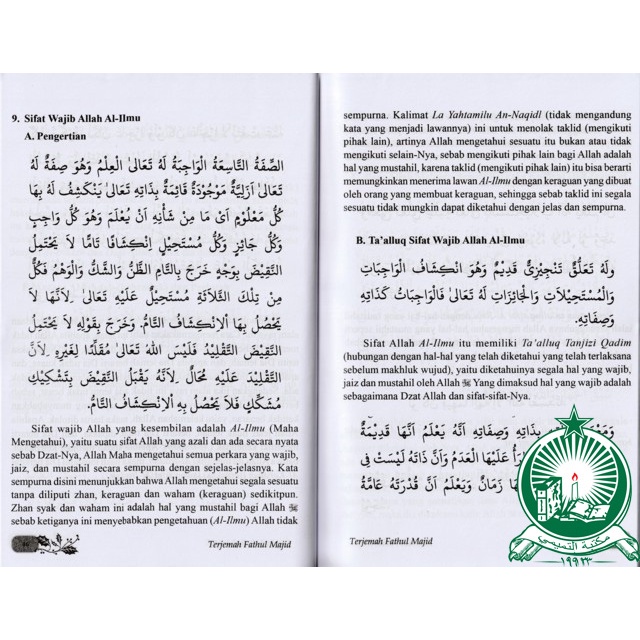 9. Sifat Wajib Allah Al-Ilmu
A. Pengertian
الصِّفَةُ التَّاسِعَةُ الْوَاجِبَةُ لَهُ تَعَالَى الْعِلْمُ وَهُوَ صِفَةٌ لَهُ
تَعَالَى اَزَلِيَّةٌ مَوْجُوْدَةٌ قَائِمَةٌ بِذَاتِهِ تَعَالَى يَنْكَشِفُ لَهُ بِهَا
كُلُّ مَعْلُوْمٍ اَىْ مَا مِنْ شَأْنِهِ اَنْ يُعْلَمَ وَهُوَ كُلُّ وَاجِبٍ
وَكُلُّ جَائِزٍ وَكُلُّ مُسْتَحِيْلٍ اِنْكِشَافًا تَامًّا لَا يَحْتَمِلُ
النَّقِيْضَ بِوَجْهٍ خَرَجَ بِالتَّامِ الظَّنُّ وَالشَّكُّ وَالْوَهْمُ فَكُلٌّ
مِنْ تِلْكَ الثَّلَاثَةِ مُسْتَحِيْلٌ عَلَيْهِ تَعَالَى لِاَنَّهَا لَا
يَحْصُلُ بِهَا الْاِنْكِشَافُ التَّامُّ. وَخَرَجَ بِقَوْلِهِ لَا يَحْتَمِلُ
النَّقِيْضَ التَّقْلِيْدُ فَلَيْسَ اللهُ تَعَالَى مُقَلِّدًا لِغَيْرِهِ لِاَنَّ
التَّقْلِيْدَ عَلَيْهِ مُحَالٌ لِاَنَّهُ يَقْبَلُ النَّقِيْضَ بِتَشْكِيْكِ
مُشَكِّكٍ فَلَا يَحْصُلُ بِهِ الْاِنْكِشَافُ التَّامُّ.
Sifat wajib Allah yang kesembilan adalah Al-Ilmu (Maha
Mengetahui), yaitu suatu sifat Allah yang azali dan ada secara nyata
sebab Dzat-Nya, Allah Maha mengetahui semua perkara yang wajib,
jaiz, dan mustahil secara sempurna dengan sejelas-jelasnya. Kata
sempurna disini menunjukkan bahwa Allah mengetahui segala sesuatu
tanpa diliputi zhan, keraguan dan waham (keraguan) sedikitpun.
Zhan syak dan waham ini adalah hal yang mustahil bagi Allah ﷻ
sebab ketiganya ini menyebabkan pengetahuan (Al-Ilmu) Allah tidak
Terjemah Fathul Majid
sempurna. Kalimat La Yahtamilu An-Naqidl (tidak mengandung
kata yang menjadi lawannya) ini untuk menolak taklid (mengikuti
pihak lain), artinya Allah mengetahui sesuatu itu bukan atau tidak
mengikuti selain-Nya, sebab mengikuti pihak lain bagi Allah adalah
hal yang mustahil, karena taklid (mengikuti pihak lain) itu bisa berarti
memungkinkan menerima lawan Al-Ilmu dengan keraguan yang dibuat
oleh orang yang membuat keraguan, sehingga sebab taklid ini segala
sesuatu tidak mungkin dapat diketahui dengan jelas dan sempurna.
B. Ta'alluq Sifat Wajib Allah Al-Ilmu
وَلَهُ تَعَلُّقٌ تَنْجِيْزِيٌّ قَدِيْمٌ وَهُوَ انْكِشَافُ الْوَاجِبَاتِ
وَالْمُسْتَحِيْلَاتِ وَالْجَائِزَاتِ لَهُ تَعَالَى فَالْوَاجِبَاتُ كَذَاتِهِ
وَصِفَاتِهِ.
Sifat Allah Al-Ilmu itu memiliki Ta'alluq Tanjizi Qadim
(hubungan dengan hal-hal yang telah diketahui yang telah terlaksana
sebelum makhluk wujud), yaitu diketahuinya segala hal yang wajib,
jaiz dan mustahil oleh Allah ﷻ Yang dimaksud hal yang wajib adalah
sebagaimana Dzat Allah dan sifat-sifat-Nya.
بِذَاتِهِ وَصِفَاتِهِ اَنَّهُ يَعْلَمُ اَنَّهَا قَدِيْمَةٌ
عَلَيْهَا الْعَدَمُ وَاَنَّ ذَاتَهُ لَيْسَتْ فِى
زَمَانٌ وَيَعْلَمُ اَنَّ قُدْرَتَهُ عَامَّةٌ
Terjemah Fathul Majid
مكتبة التميمي